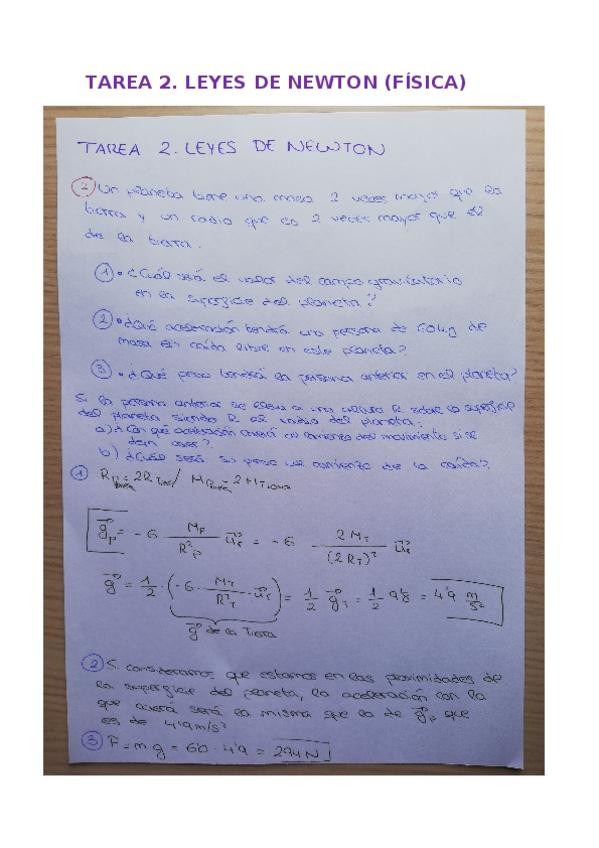 TAREA 2. LEYES DE NEWTON (FÍSICA)
TAREA 2. LEYES DE NEWTON
① Un planeta tiene una masa 2 veces mayor que la
tierra y un radio que es 2 veces mayor que el
de la tierra.
① • ¿Cuál será el valor del campo gravitatorio
en la superficie del planeta?
② • ¿Qué aceleración tendrá una persona de 60 kg de
masa en caída libre en este planeta?
③ • ¿Qué peso tendrá la persona anterior en el planeta?
Si la persona anterior se eleva a una altura R sobre la superficie
del planeta siendo R el radio del planeta.
a) ¿Con qué aceleración caerá al comienzo del movimiento si se
deja caer?
b) ¿Cuál será su peso al comienzo de la caída?
① R = 2R / M = 2M
g⃗p = - G · Mp / R²p u⃗r = - G 2 MT / (2 RT)² u⃗r
g⃗ = 1/2 · (- G · MT / R²T · u⃗r) = 1/2 g⃗T = 1/2 9'8 = 4'9 m/s²
g⃗ de la Tierra
② Si consideramos que estamos en las proximidades de
la superficie del planeta, la aceleración con la
que caerá será la misma que la de g⃗p que
es de 4'9 m/s²
③ F = m g = 60 · 4'9 = 294 N